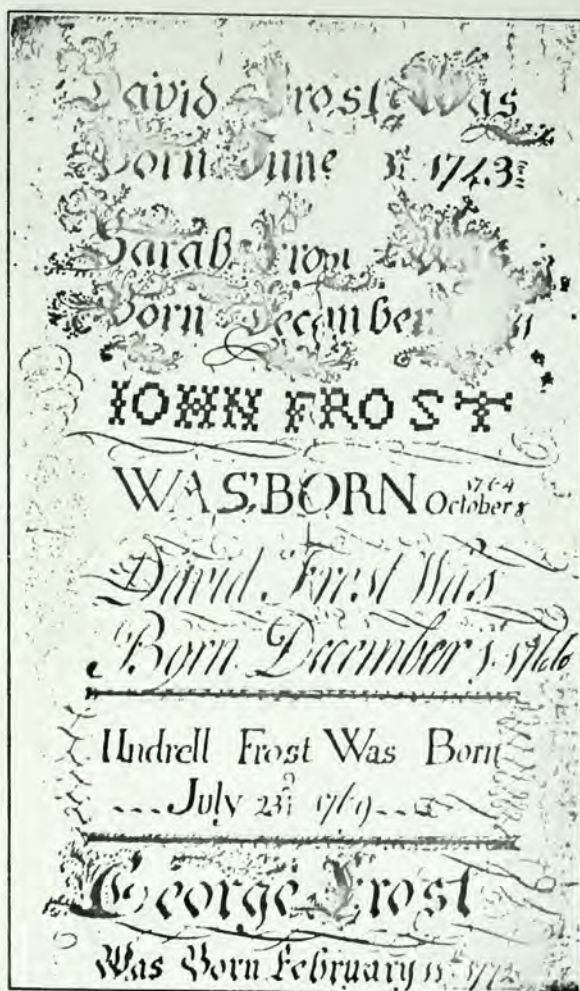 David Frost Was
Born June 3 1743
Sarah Frost
Born December
IOHN FROST
WAS BORN October 8 1764
David Frost Was
Born December 1st 1766
Undrell Frost Was Born
July 23d 1769
George Frost
Was Born February 11 1772